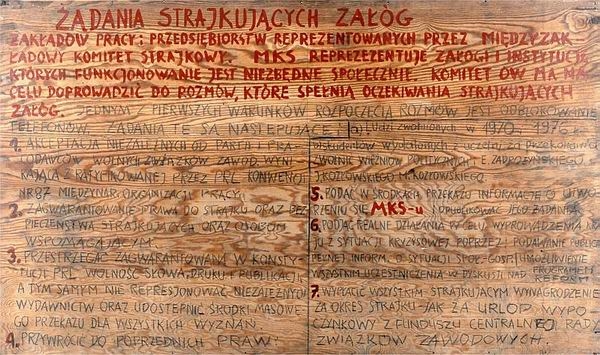 ŻĄDANIA STRAJKUJĄCYCH ZAŁÓG
ZAKŁADÓW PRACY I PRZEDSIĘBIORSTW REPREZENTOWANYCH PRZEZ MIĘDZYZAK
ŁADOWY KOMITET STRAJKOWY. MKS REPREZEZENTUJE ZAŁOGI I INSTYTUCJE,
KTÓRYCH FUNKCJONOWANIE JEST NIEZBĘDNE SPOŁECZNIE. KOMITET ÓW MA NA
CELU DOPROWADZIĆ DO ROZMÓW, KTÓRE SPEŁNIĄ OCZEKIWANIA STRAJKUJĄCYCH
ZAŁÓG. JEDNYM PIERWSZYCH WARUNKÓW ROZPOCZĘCIA ROZMÓW JEST ODBLOKOWANIE
TELEFONÓW. ŻĄDANIA TE SĄ NASTĘPUJĄCE:
1. AKCEPTACJA NIEZALEŻNYCH OD PARTII I PRA-
CODAWCÓW WOLNYCH ZWIĄZKÓW ZAWOD. WYNI
KAJĄCA Z RATYFIKOWANEJ PRZEZ PRL KONWENCJI
NR 87 MIĘDZYNAR. ORGANIZACJI PRACY.
2. ZAGWARANTOWANIE PRAWA DO STRAJKU ORAZ BEZ
PIECZEŃSTWA STRAJKUJĄCYM ORAZ OSOBOM
WSPOMAGAJĄCYM.
3. PRZESTRZEGAĆ ZAGWARANTOWANĄ W KONSTY-
TUCJI PRL WOLNOŚĆ SŁOWA, DRUKU I PUBLIKACJI,
A TYM SAMYM NIE REPRESJONOWAĆ NIEZALEŻNYCH
WYDAWNICTW ORAZ UDOSTĘPNIĆ ŚRODKI MASOWE-
GO PRZEKAZU DLA WSZYSTKICH WYZNAŃ.
4. PRZYWRÓCIĆ DO POPRZEDNICH PRAW:
a) Ludzi zwolnionych w 1970 1976
b) studentów wydalonych z uczelni za przekonania
WOLNIĆ WIĘŹNIÓW POLITYCZNYCH E. ZADROŻYŃSKIEGO,
J. KOZŁOWSKIEGO, M. KOZŁOWSKIEGO.
5. PODAĆ W ŚRODKACH PRZEKAZU INFORMACJE O UTWO
RZENIU SIĘ MKS-u I OPUBLIKOWAĆ JEGO ŻĄDANIA
6. PODAĆ REALNE DZIAŁANIA W CELU WYPROWADZENIA KRA
JU Z SYTUACJI KRYZYSOWEJ POPRZEZ: PODAWANIE PUBLICZ
PEŁNEJ INFORM. O SYTUACJI SPOŁ-GOSP. I UMOŻLIWIENIE
WSZYSTKIM UCZESTNICZENIA W DYSKUSJI NAD PROGRAMEM
REFORM
7. WYPŁACIĆ WSZYSTKIM STRAJKUJĄCYM WYNAGRODZENIE
ZA OKRES STRAJKU-JAK ZA URLOP WYPO
CZYNKOWY Z FUNDUSZU CENTRALNEJ RADY
ZWIĄZKÓW ZAWODOWYCH.